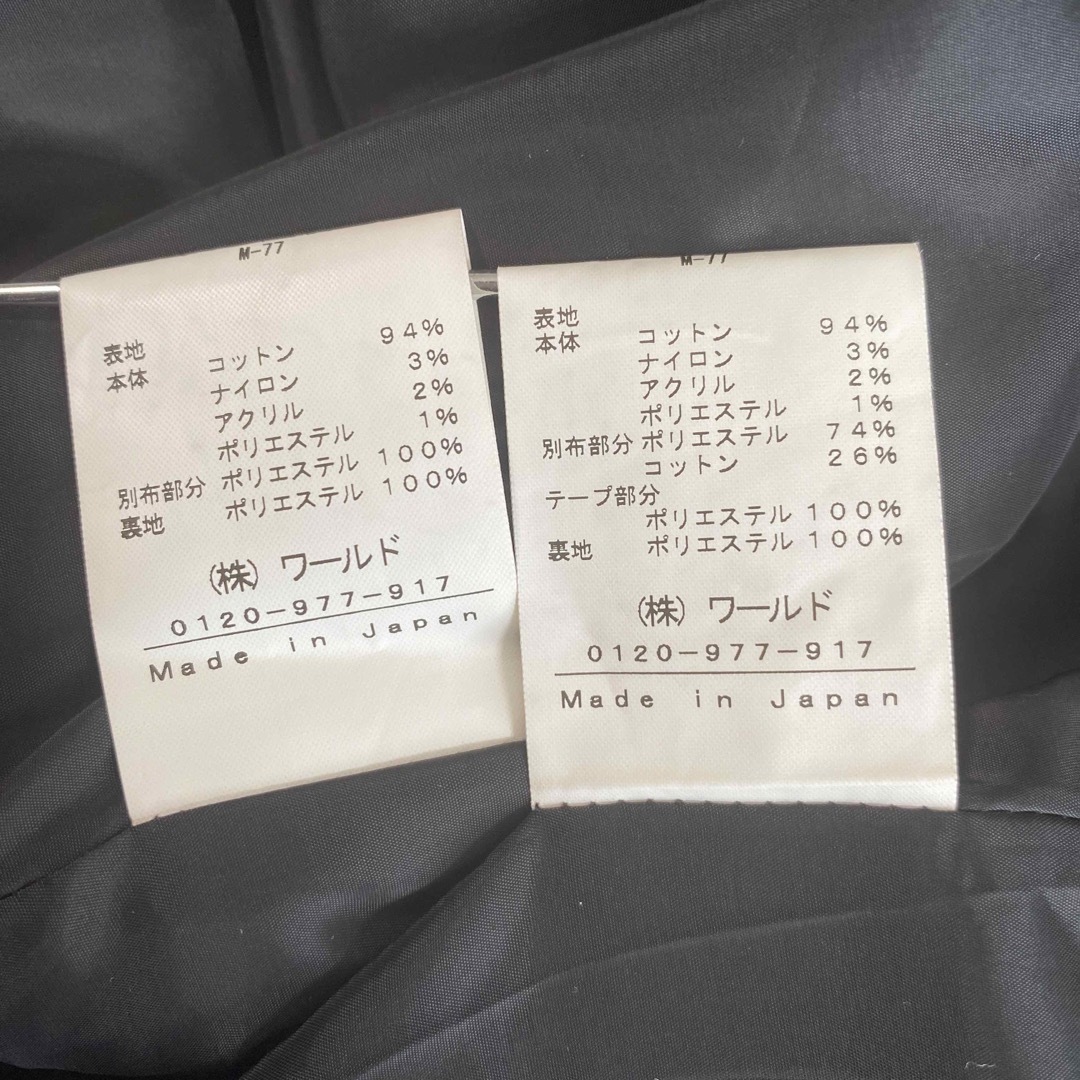 M-77
表地
本体 コットン 94%
ナイロン 3%
アクリル 2%
ポリエステル 1%
別布部分 ポリエステル 100%
裏地 ポリエステル 100%
(株) ワールド
0120-977-917
Made in Japan
M-77
表地
本体 コットン 94%
ナイロン 3%
アクリル 2%
ポリエステル 1%
別布部分 ポリエステル 74%
コットン 26%
テープ部分
ポリエステル 100%
裏地 ポリエステル 100%
(株) ワールド
0120-977-917
Made in Japan